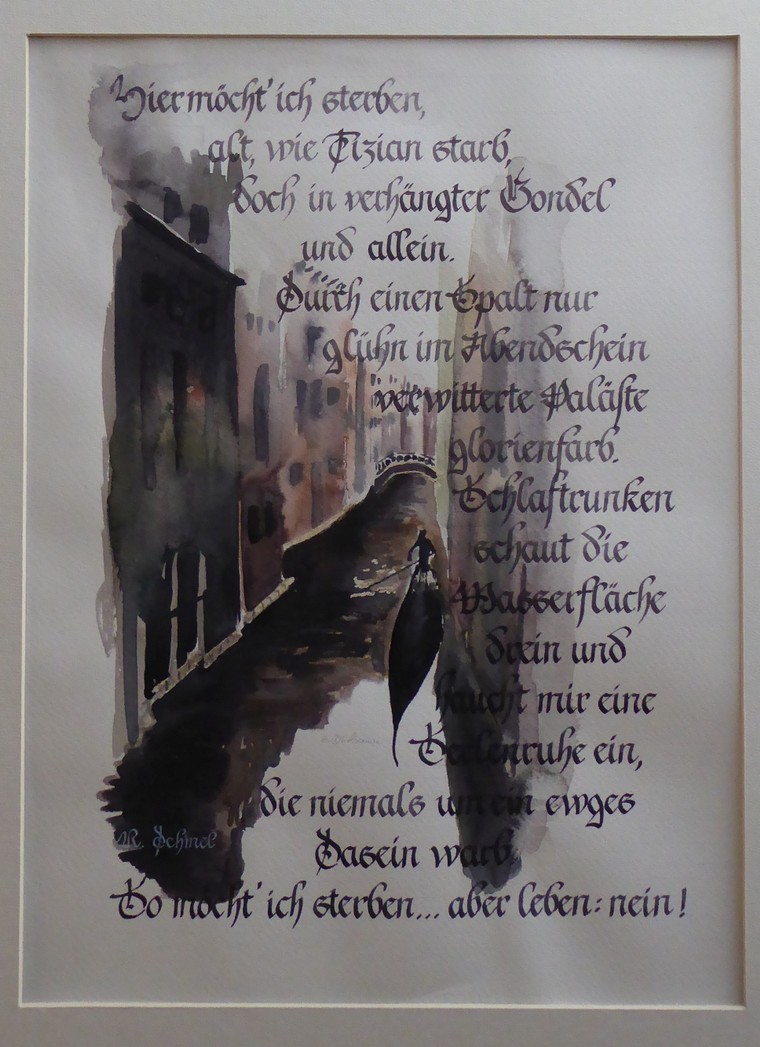 Hier möcht' ich sterben,
alt, wie Tizian starb,
doch in verhängter Gondel
und allein.
Durch einen Spalt nur
glühn im Abendschein
verwitterte Paläste
glorienfarb.
Schlaftrunken
schaut die
Wasserfläche
drein und
haucht mir eine
Seelenruhe ein,
die niemals um ein ewges
Dasein warb.
So möcht' ich sterben... aber leben: nein!
R. Dehmel